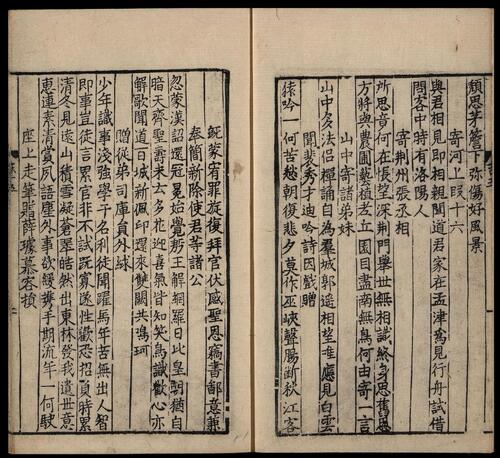 顏思茅簷下弥傷好風景
寄河上段十六
與君相見即相親聞道君家在孟津為見行舟試借
問客中時有洛陽人
寄荆州張丞相
所思竟何在悵望深荆門舉世無相識終身思舊恩
方將與農圃藝植老丘園目盡南無鴈何由寄一言
山中寄諸弟妹
山中多法侶禪誦自為羣城郭遥相望唯應見白雲
聞裴秀才迪吟詩因戲贈
猿吟一何苦愁朝復悲夕莫作巫峽聲腸斷秋江客
旣蒙宥罪旋復拜官伏感聖恩竊書鄙意兼
奉簡新除使君等諸公
忽蒙漢詔還冠冕始覺殷王解網羅日比皇明猶自
暗天齊聖壽未云多花迎喜氣皆知笑鳥識歡心亦
解歌聞道百城新佩印還來雙闕共鳴珂
贈從弟司庫員外絿
少年識事淺強學干名利徒聞躍馬年苦無出人智
即事豈徒言累官非不試旣寡遂性歡恐招負時累
清冬見遠山積雪凝蒼翠皓然出東林發我遺世意
惠連素清賞夙語塵外事欲緩攜手期流年一何駛
座上走筆贈薛璩慕容損